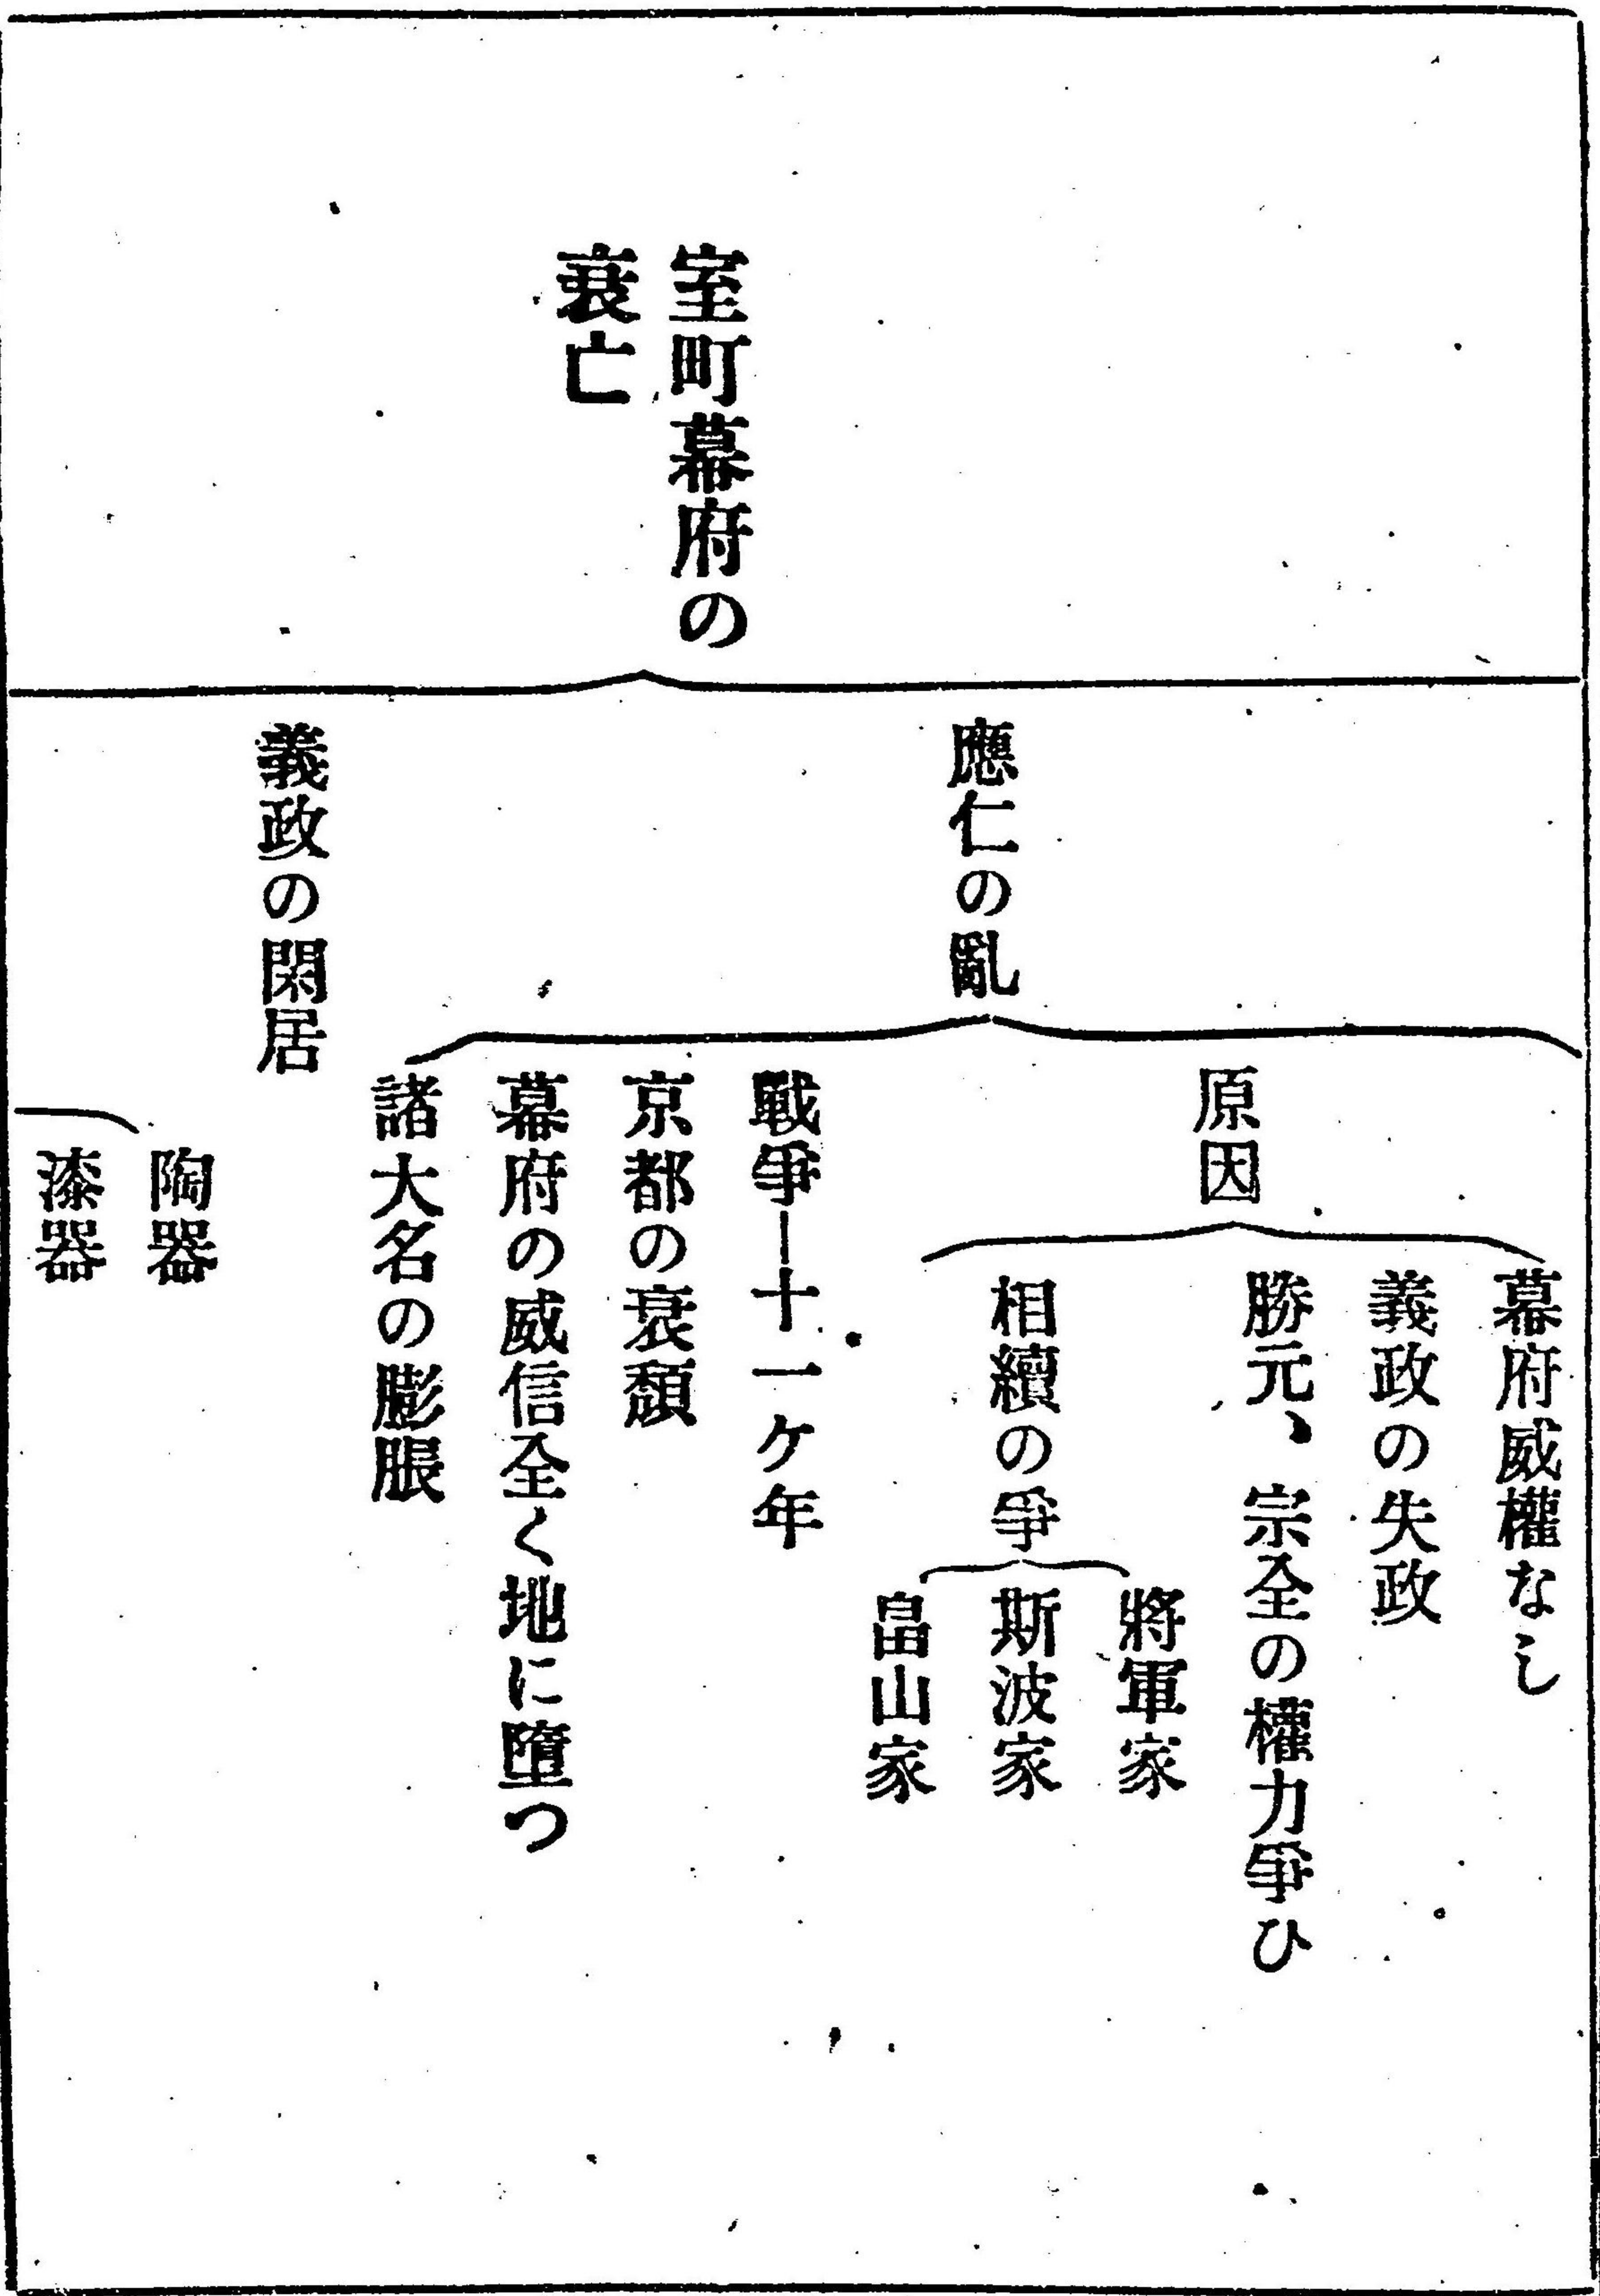 室町幕府の
衰亡
應仁の亂
原因
幕府威權なし
義政の失政
勝元、宗全の權力爭ひ
相續の爭
將軍家
斯波家
畠山家
戰爭―十一ケ年
京都の衰頽
幕府の威信全く地に墮つ
諸大名の膨脹
義政の閑居
陶器
漆器